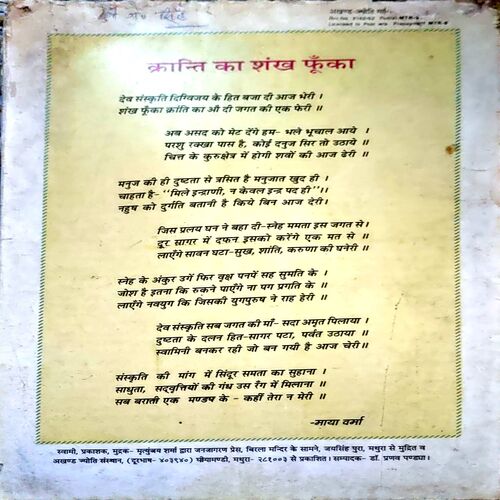 अखण्ड-ज्योति मई-
क्रान्ति का शंख फूँका
देव संस्कृति दिग्विजय के हित बजा दी आज भेरी ।
शंख फूँका क्रांति का औ दी जगत की एक फेरी ॥
अब असद को मेट देंगे हम- भले भूचाल आये ।
परशु रक्खा पास है, कोई दनुज सिर तो उठाये ॥
चित्त के कुरुक्षेत्र में होगी शवों की आज ढेरी ॥
मनुज की ही दुष्टता से त्रसित है मनुजात खुद ही ।
चाहता है- "मिले इन्द्राणी, न केवल इन्द्र पद ही"।।
नहुष को दुर्गति बतानी है किये बिन आज देरी।
जिस प्रलय घन ने बहा दी-स्नेह ममता इस जगत से।
दूर सागर में दफन इसको करेंगे एक मत से ॥
लाएँगे सावन घटा-सुख, शांति, करुणा की घनेरी ॥
स्नेह के अंकुर उगें फिर वृक्ष पनपें सह सुमति के ।
जोश है इतना कि रुकने पाएँगे ना पग प्रगति के ॥
लाएँगे नवयुग कि जिसकी युगपुरुष ने राह हेरी ॥
देव संस्कृति सब जगत की माँ- सदा अमृत पिलाया ।
दुष्टता के दलन हित-सागर पटा, पर्वत उठाया ॥
स्वामिनी बनकर रही जो बन गयी है आज चेरी॥
संस्कृति की मांग में सिंदूर समता का सुहाना ।
साधुता, सद्वृत्तियों की गंध उस रँग में मिलाना ॥
सब बराती एक मण्डप के - कहीं तेरा न मेरी ॥
-माया वर्मा
स्वामी, प्रकाशक, मुद्रक- मृत्युंजय शर्मा द्वारा जनजागरण प्रेस, बिरला मन्दिर के सामने, जयसिंह पुरा, मथुरा से मुद्रित व
अखण्ड ज्योति संस्थान, (दूरभाष- ४०३९४०) घीयामण्डी, मथुरा- २८१००३ से प्रकाशित। सम्पादक- डॉ. प्रणव पण्ड्या।